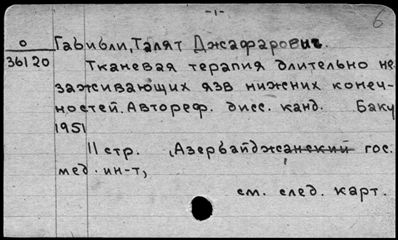 -1-
6
О
36120
Габибли, Талят Джафарович.
Тканевая терапия длительно не
заживающих язв нижних конеч-
ностей. Автореф. дисс. канд. Баку
1951
11 стр. (Азербайджанский гос.
мед. ин-т,
см. след. карт.